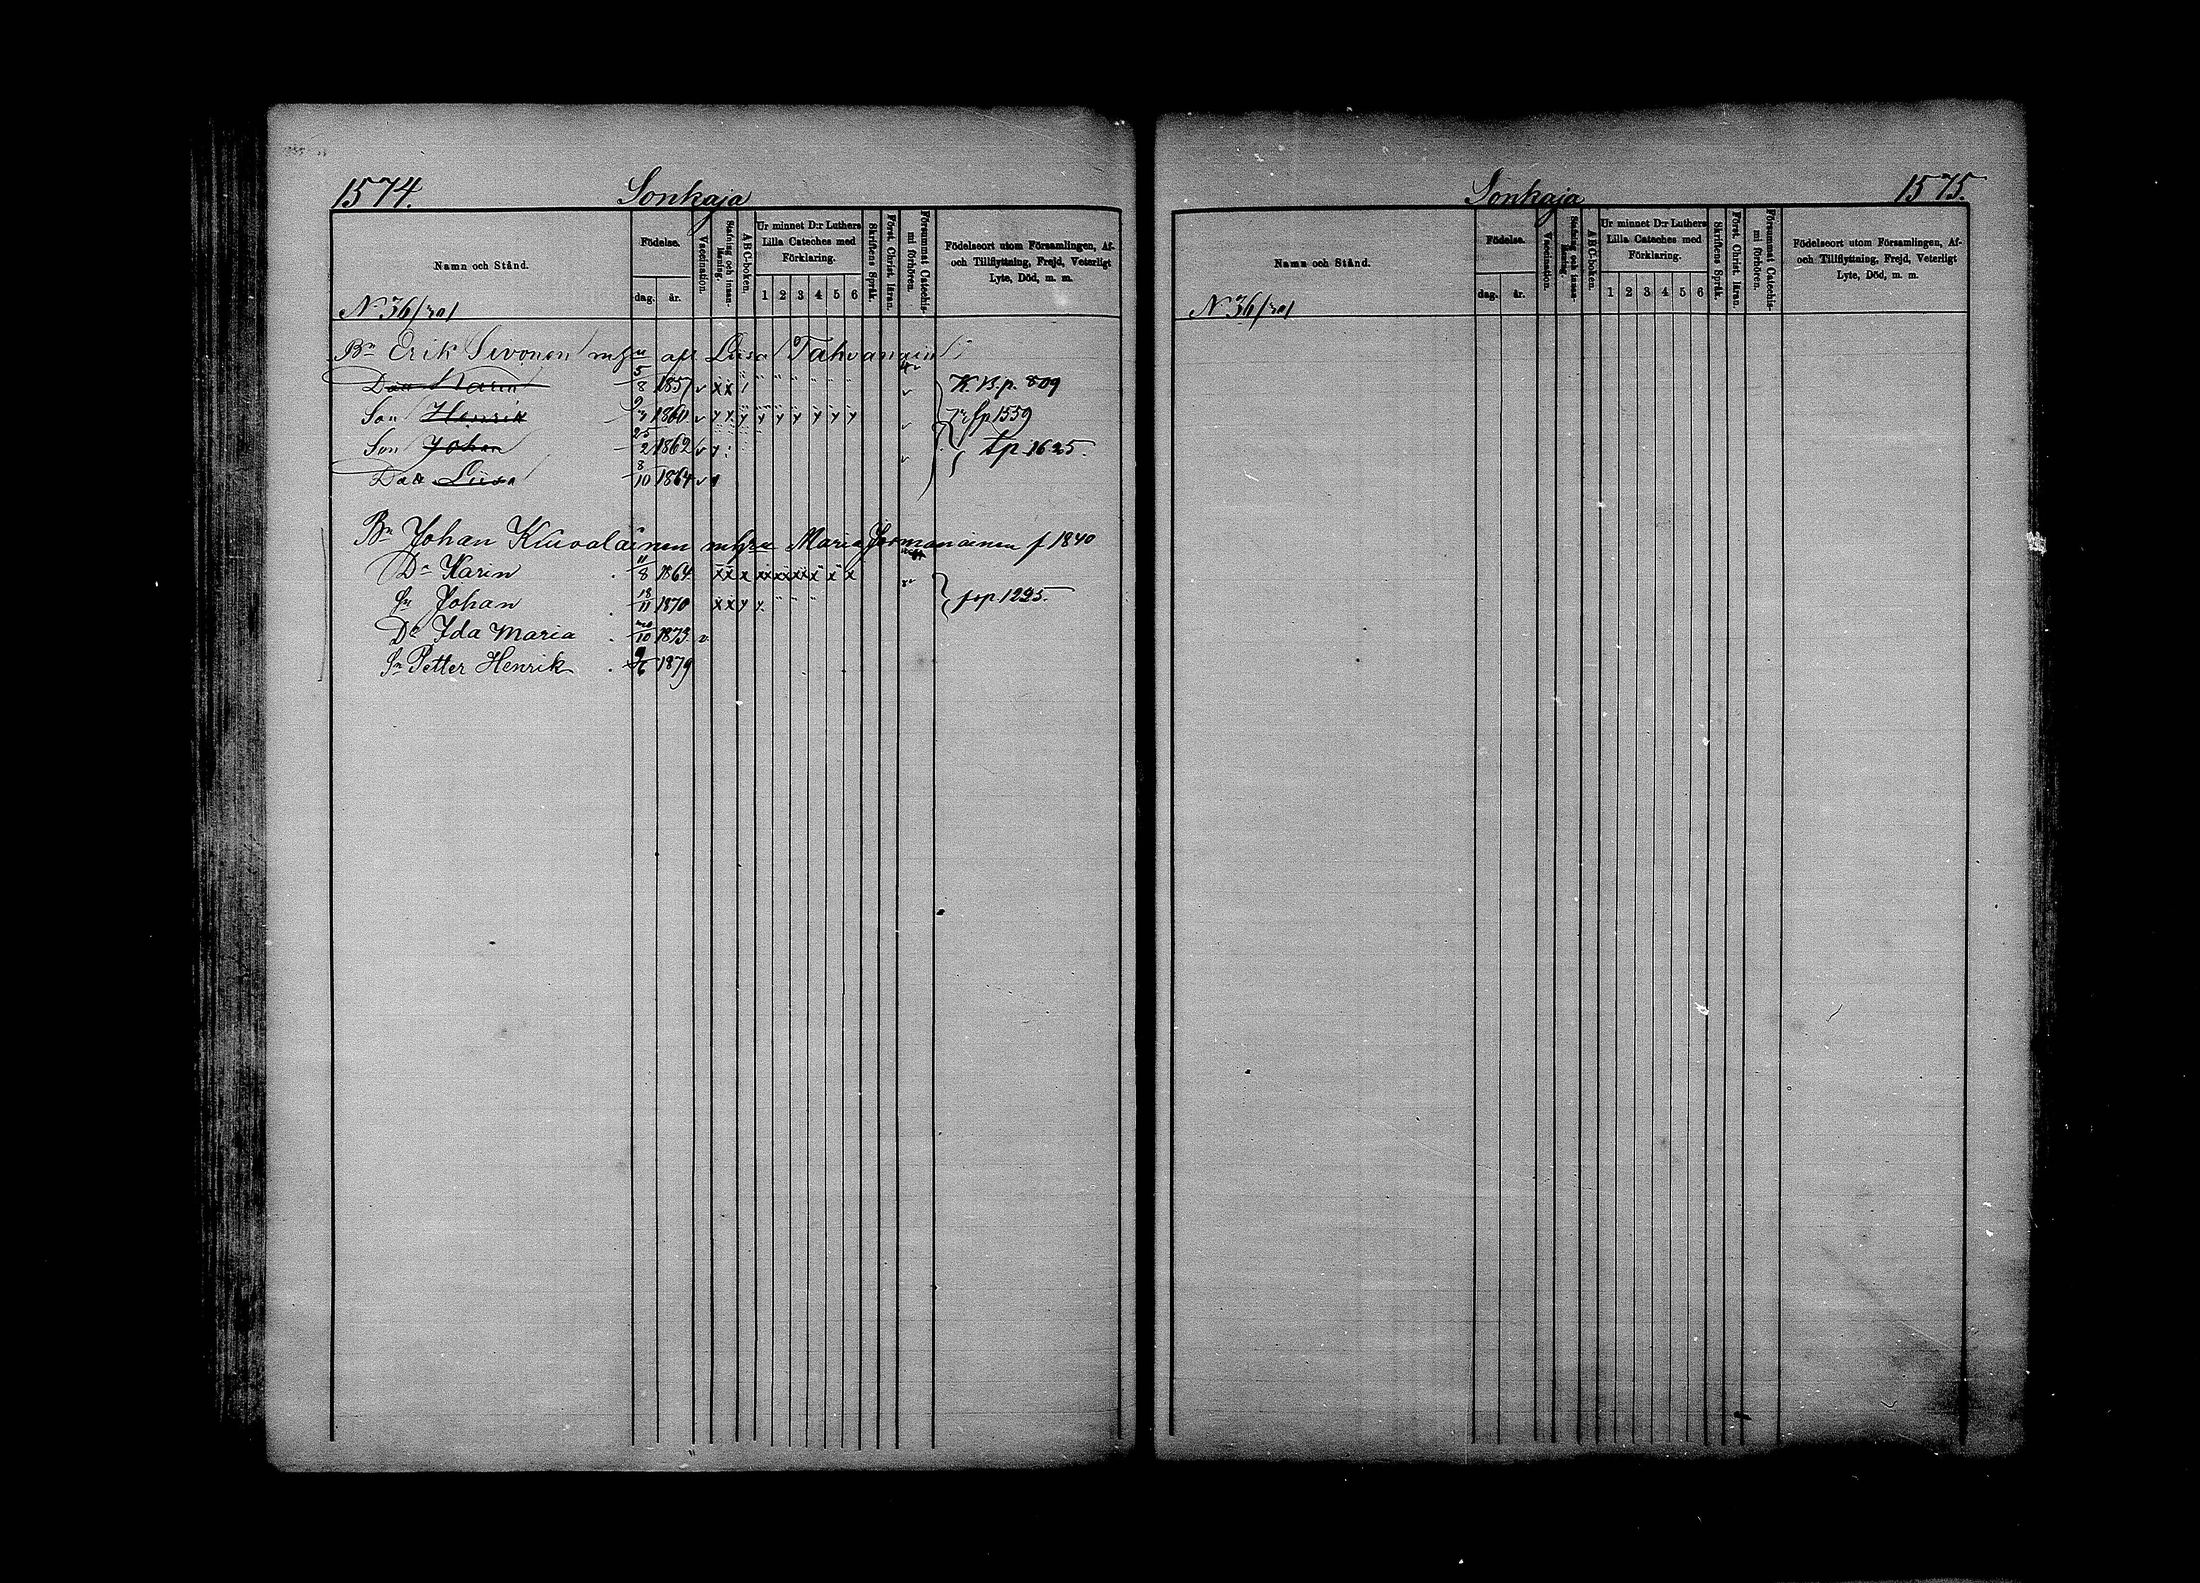 1574. Sonkaja
Namn och Stånd.
Födelse.
dag. år.
Vaccination.
Stafning och innan-läsning.
A B C-boken.
Ur minnet D:r Luthers Lilla Cateches med Förklaring.
1 2 3 4 5 6
Skriftens Språk.
Först. Christ. läran.
Försummat Catechis-mi förhören.
Födelseort utom Församlingen, Af-
och Tillflyttning, Frejd, Veterligt
Lyte, Död, m. m.
N 36/201
Bn Erik Sivonen Liisa Tahvanain
Dott Karin 5/8 1857 v x x K.B.p. 809
Son Henrik 1860 v y y y y y y y y p 1559
Son Johan 25/2 1862 v y p 1625.
Dott Liisa 8/10 1864 v
Bn Johan Kiuvalainen Maria Jormanainen f 1840
Dr Karin 11/8 1864 x x x xx xx xx x x x
Sn Johan 18/11 1870 x x y y p 1295.
Dr Ida Maria 10 1873. v
Sn Petter Henrik 1879
Sonkaja 1575.
Namn och Stånd.
Födelse.
dag. år.
Vaccination.
Stafning och innan-läsning.
A B C-boken.
Ur minnet D:r Luthers Lilla Cateches med Förklaring.
1 2 3 4 5 6
Skriftens Språk.
Först. Christ. läran.
Försummat Catechis-mi förhören.
Födelseort utom Församlingen, Af-
och Tillflyttning, Frejd, Veterligt
Lyte, Död, m. m.
N 36/201